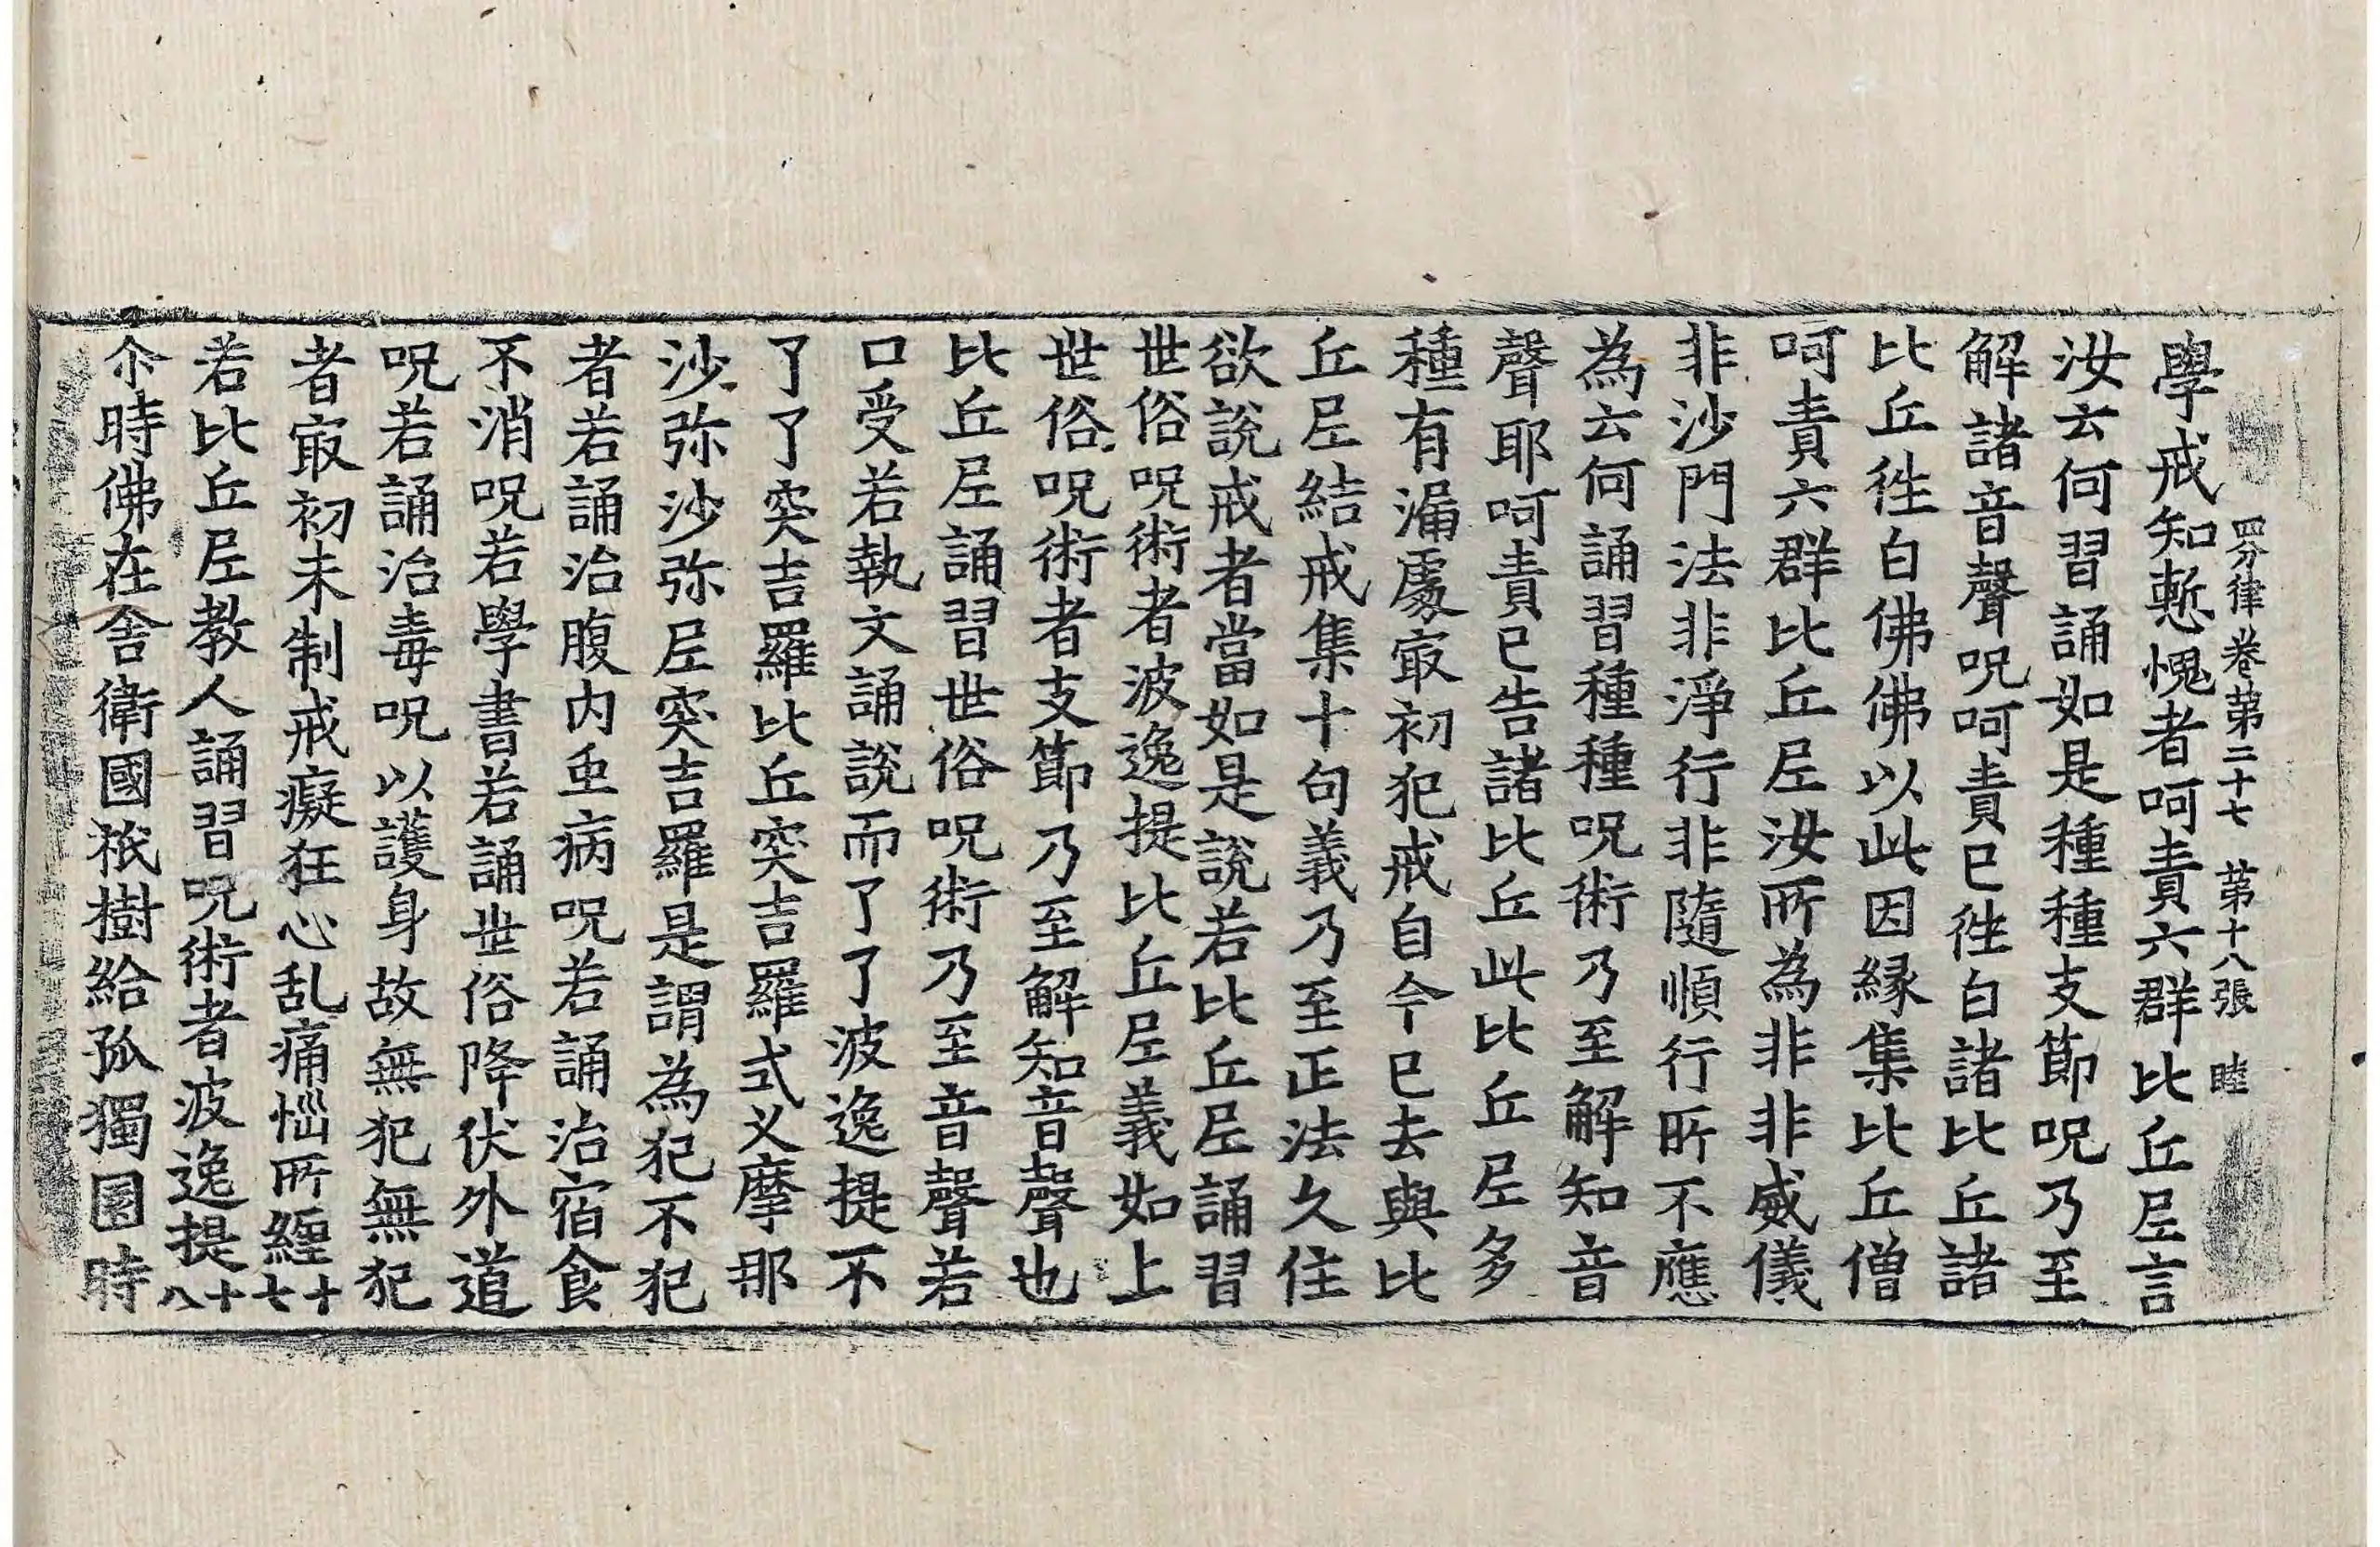 四分律卷苐二十七 苐十八張 睦
學戒知慙愧者呵責六群比丘尼言
汝云何習誦如是種種支節呪乃至
解諸音聲呪呵責已徃白諸比丘諸
比丘徃白佛佛以此因緣集比丘僧
呵責六群比丘尼汝所為非非威儀
非沙門法非淨行非隨順行所不應
為云何誦習種種呪術乃至解知音
聲耶呵責已告諸比丘此比丘尼多
種有漏處冣初犯戒自今已去與比
丘尼結戒集十句義乃至正法久住
欲說戒者當如是說若比丘尼誦習
世俗呪術者波逸提比丘尼義如上
世俗呪術者支節乃至解知音聲也
比丘尼誦習世俗呪術乃至音聲若
口受若執文誦說而了了波逸提不
了了突吉羅比丘突吉羅式叉摩那
沙弥沙弥尼突吉羅是謂為犯不犯
者若誦治腹内虫病呪若誦治宿食
不消呪若學書若誦世俗降伏外道
呪若誦治毒呪以護身故無犯無犯
者冣初未制戒癡狂心乱痛惱所纒十七
若比丘尼教人誦習呪術者波逸提十八
尒時佛在舍衛國祇樹給孤獨園時